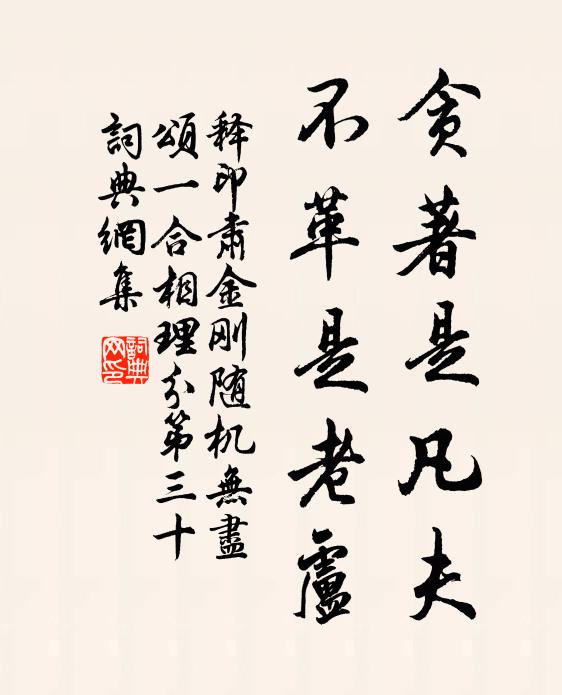 貪著是凡夫
不革是老盧
释印肃金刚随机無盡
頌一合相理分第三十
詞典網集
詞典网印